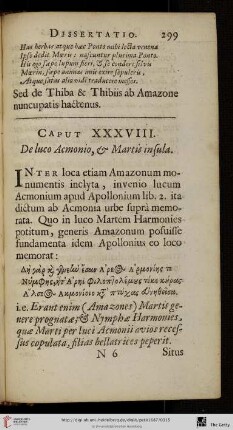 DISSERTATIO. 299
Has herbas atque hæc Ponto mihi lecta venena
Ipse dedit Mœris: nascuntur plurima Ponto.
His ego sæpe lupum fieri, & se condere silvis
Mœrin, sæpe animas imis exire sepulcris,
Atque satas alio vidi traducere messes.
Sed de Thiba & Thibiis ab Amazone
nuncupatis hactenus.
CAPUT XXXVIII.
De luco Acmonio, & Martis insula.
INTER loca etiam Amazonum mo-
numentis inclyta, invenio lucum
Acmonium apud Apollonium lib. 2. ita
dictum ab Acmonia urbe suprà memo-
rata. Quo in luco Martem Harmonies
potitum, generis Amazonum posuisse
fundamenta idem Apollonius eo loco
memorat:
Δὴ γὰρ
Νύμφης,
Ἄλσεος Ἀκμονίοιο
i.e. Erant enim (Amazones) Martis ge-
nere prognatæ, & Nymphæ Harmonies,
quæ Marti per luci Acmonii avios reces-
sus copulata, filias bellatrices peperit.
N 6 Situs